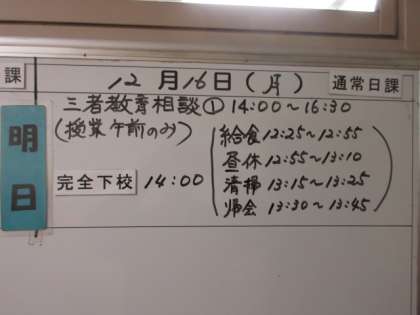 課
12月16日(月) 通常日課
明日
三者教育相談① 14:00～16:30
(授業午前のみ)
給食 12:25～12:55
昼休 12:55～13:10
完全下校 14:00
清掃 13:15～13:25
帰会 13:30～13:45